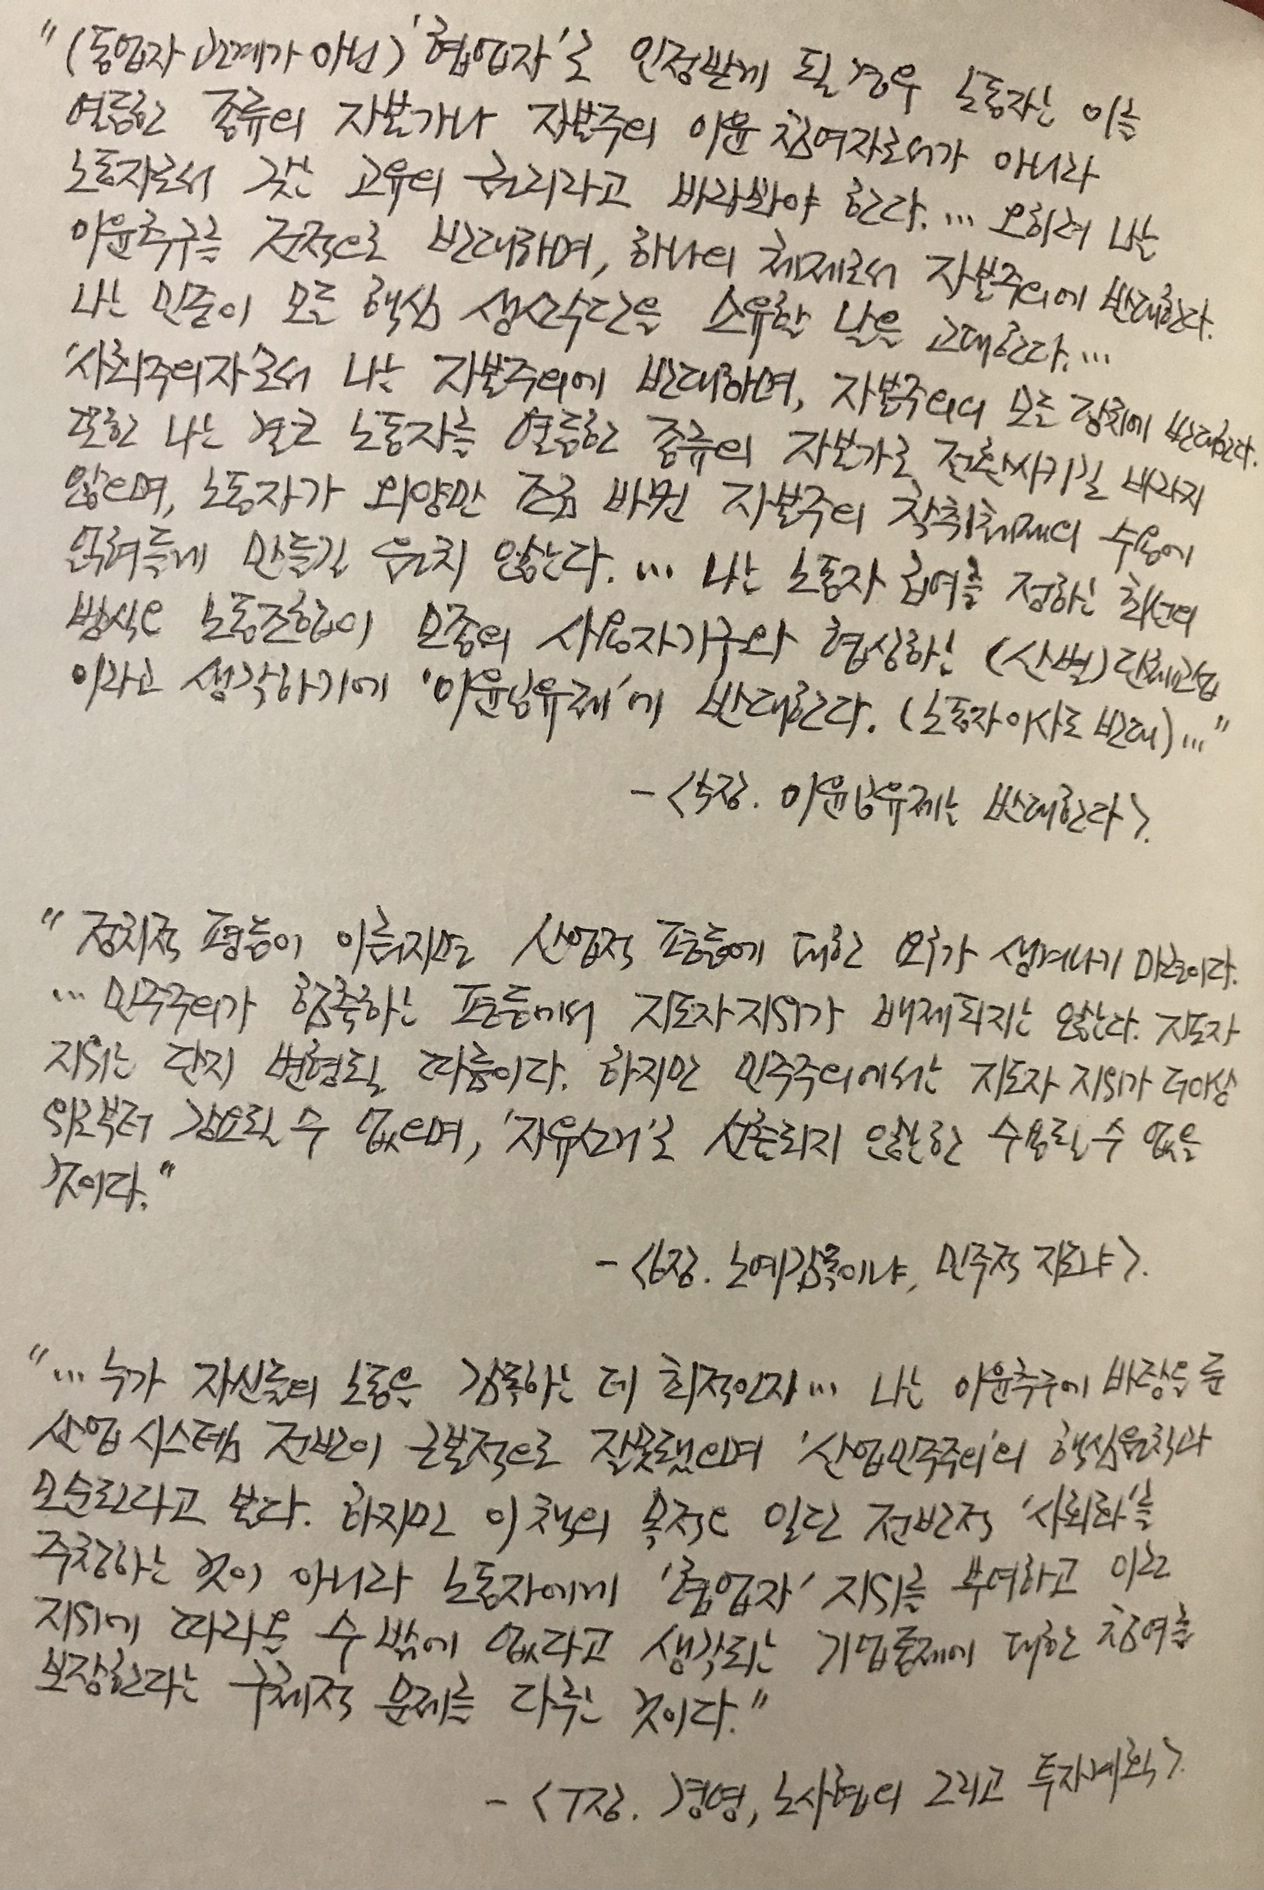 "(동업자 관계가 아닌) '협업자'로 인정받게 될 경우 노동자는 이를
열등한 종류의 자본가나 자본주의 이윤 참여자로서가 아니라
노동자로서 갖는 고유의 권리라고 바라봐야 한다. … 오히려 나는
이윤추구를 전적으로 반대하며, 하나의 체제로서 자본주의에 반대한다.
나는 민중이 모든 핵심 생산수단을 소유할 날을 고대한다. …
'사회주의자'로서 나는 자본주의에 반대하며, 자본주의의 모든 장치에 반대한다.
또한 나는 결코 노동자를 열등한 종류의 자본가로 전환시키길 바라지
않으며, 노동자가 외양만 조금 바뀐 자본주의 착취체제의 수용에
익려들게 만들길 원치 않는다. … 나는 노동자 급여를 정하는 최선의
방식은 노동조합이 모종의 사용자기구와 협상하는 (산별)단체교섭
이라고 생각하기에 '이윤공유제'에 반대한다. (노동자이사도 반대)…"
- <5장. 이윤공유제는 반대한다>.
"정치적 평등이 이뤄지면 산업적 평등에 대한 요구가 생겨나기 마련이다.
… 민주주의가 함축하는 평등에서 지도자 지위가 배제되지는 않는다. 지도자
지위는 단지 변형될 따름이다. 하지만 민주주의에서는 지도자 지위가 더이상
위로부터 강요될 수 없으며, '자유선거'로 선출되지 않는한 수용될 수 없을
것이다."
- <6장. 노예감독이냐, 민주적 지도냐>.
"… 누가 자신들의 노동을 감독하는 데 최적인지… 나는 이윤추구에 바탕을 둔
산업 시스템 전반이 근본적으로 잘못됐으며 '산업민주주의'의 핵심원칙과
모순된다고 본다. 하지만 이 책의 목적은 일단 전반적 '사회화'를
주창하는 것이 아니라 노동자에게 '협업자' 지위를 부여하고 이런
지위에 따라올 수 밖에 없다고 생각되는 기업통제에 대한 참여를
보장한다는 구체적 문제를 다루는 것이다."
- <7장. 경영, 노사협의 그리고 투자계획>.